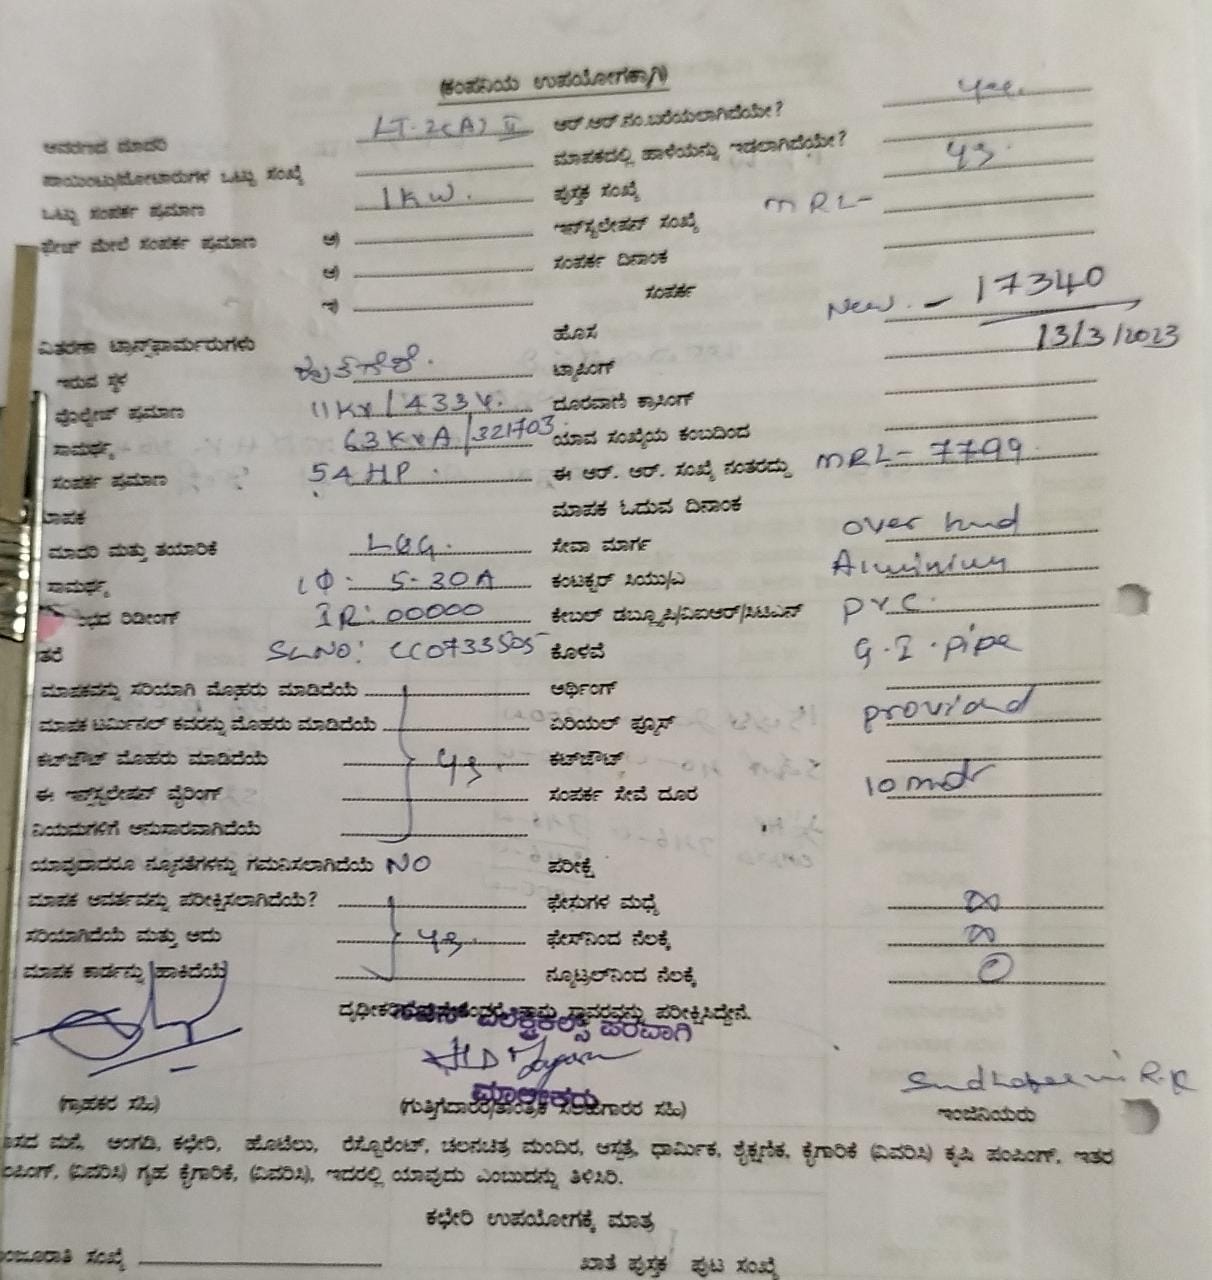 (ಕಂಪನಿಯ ಉಪಯೋಗಕ್ಕಾಗಿ)
LT-2(A) II ಆರ್.ಆರ್.ನಂ.ಬರೆಯಲಾಗಿದೆಯೇ? yes.
ಮಾಪಕದಲ್ಲಿ ಹಾಳೆಯನ್ನು ಇಡಲಾಗಿದೆಯೇ? ys.
ಒಟ್ಟು ಸಂಪರ್ಕ ಪ್ರಮಾಣ 1KW. ಪುಸ್ತಕ ಸಂಖ್ಯೆ
ಫೇಜ್ ಮೇಲೆ ಸಂಪರ್ಕ ಪ್ರಮಾಣ ಅ) ಇನ್‌ಸ್ಟಲೇಷನ್ ಸಂಖ್ಯೆ MRL-
ಆ) ಸಂಪರ್ಕ ದಿನಾಂಕ
ಇ) ಸಂಪರ್ಕ New. - 17340
ವಿತರಣಾ ಟ್ರಾನ್ಸ್‌ಫಾರ್ಮರುಗಳು ಹೊಸ 13/3/2023
ಇರುವ ಸ್ಥಳ ಟ್ಯಾಪಿಂಗ್
ವೊಲ್ಟೇಜ್ ಪ್ರಮಾಣ 11KV/433V. ದೂರವಾಣಿ ಕ್ರಾಸಿಂಗ್
ಸಾಮರ್ಥ್ಯ 63KVA/321703 ಯಾವ ಸಂಖ್ಯೆಯ ಕಂಬದಿಂದ
ಸಂಪರ್ಕ ಪ್ರಮಾಣ 54HP. ಈ ಆರ್. ಆರ್. ಸಂಖ್ಯೆ ನಂತರದ್ದು MRL-7799.
ಮಾಪಕ ಮಾಪಕ ಓದುವ ದಿನಾಂಕ
ಮಾದರಿ ಮತ್ತು ತಯಾರಿಕೆ L&G. ಸೇವಾ ಮಾರ್ಗ over hud
ಸಾಮರ್ಥ್ಯ 1Φ: 5-30A ಕಂಟಕ್ಟರ್ ಸಿಯು/ಎ Aluminium
ರಿಡೀಂಗ್ IR: 00000 ಕೇಬಲ್ ಡಬ್ಲ್ಯೂಪಿ/ವಿಐಆರ್/ಸಿಟಿಎಸ್ PVC.
SLNO: CC0733505 ಕೊಳವೆ G.I.pipe
ಮಾಪಕವನ್ನು ಸರಿಯಾಗಿ ಮೊಹರು ಮಾಡಿದೆಯೆ ಅರ್ಥಿಂಗ್
ಮಾಪಕ ಟರ್ಮಿನಲ್ ಕವರನ್ನು ಮೊಹರು ಮಾಡಿದೆಯೆ ಏರಿಯಲ್ ಫ್ಯೂಸ್ providd
ಕಟ್‌ಔಟ್ ಮೊಹರು ಮಾಡಿದೆಯೆ ys. ಕಟ್‌ಔಟ್
ಈ ಇನ್‌ಸ್ಟಲೇಷನ್ ವೈರಿಂಗ್ ಸಂಪರ್ಕ ಸೇವೆ ದೂರ 10 mtr
ನಿಯಮಗಳಿಗೆ ಅನುಸಾರವಾಗಿದೆಯೆ
ಯಾವುದಾದರೂ ನ್ಯೂನತೆಗಳನ್ನು ಗಮನಿಸಲಾಗಿದೆಯೆ NO ಪರೀಕ್ಷೆ
ಮಾಪಕ ಆವರ್ತವನ್ನು ಪರೀಕ್ಷಿಸಲಾಗಿದೆಯೆ? ಫೇಸುಗಳ ಮಧ್ಯೆ ∞
ಸರಿಯಾಗಿದೆಯೆ ಮತ್ತು ಅದು ys. ಫೇಸ್‌ನಿಂದ ನೆಲಕ್ಕೆ ∞
ಮಾಪಕ ಕಾರ್ಡನ್ನು ಹಾಕಿದೆಯೆ ನ್ಯೂಟ್ರಲ್‌ನಿಂದ ನೆಲಕ್ಕೆ 0
ಸ್ಥಾವರವನ್ನು ಪರೀಕ್ಷಿಸಿದ್ದೇನೆ.
ಎಲೆಕ್ಟ್ರಿಕಲ್ಸ್ ಪರವಾಗಿ
ಮಾಲೀಕರು
(ಗ್ರಾಹಕರ ಸಹಿ) (ಗುತ್ತಿಗೆದಾರರ/ತಾಂತ್ರಿಕ ಸಲಹಾಗಾರರ ಸಹಿ) ಇಂಜಿನಿಯರು
ಮನೆ, ಅಂಗಡಿ, ಕಛೇರಿ, ಹೊಟೆಲು, ರೆಸ್ಟೊರೆಂಟ್, ಚಲನಚಿತ್ರ ಮಂದಿರ, ಆಸ್ಪತ್ರೆ, ಧಾರ್ಮಿಕ, ಶೈಕ್ಷಣಿಕ, ಕೈಗಾರಿಕೆ (ವಿವರಿಸಿ) ಕೃಷಿ ಪಂಪಿಂಗ್, ಇತರ
(ವಿವರಿಸಿ) ಗೃಹ ಕೈಗಾರಿಕೆ, (ವಿವರಿಸಿ), ಇದರಲ್ಲಿ ಯಾವುದು ಎಂಬುದನ್ನು ತಿಳಿಸಿರಿ.
ಕಛೇರಿ ಉಪಯೋಗಕ್ಕೆ ಮಾತ್ರ
ಸಂಖ್ಯೆ ಖಾತೆ ಪುಸ್ತಕ ಪುಟ ಸಂಖ್ಯೆ